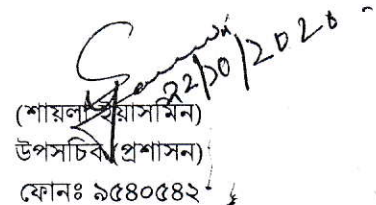 22/10/2020
(শায়লা ইয়াসমিন)
উপসচিব (প্রশাসন)
ফোনঃ ৯৫৪০৫৪২